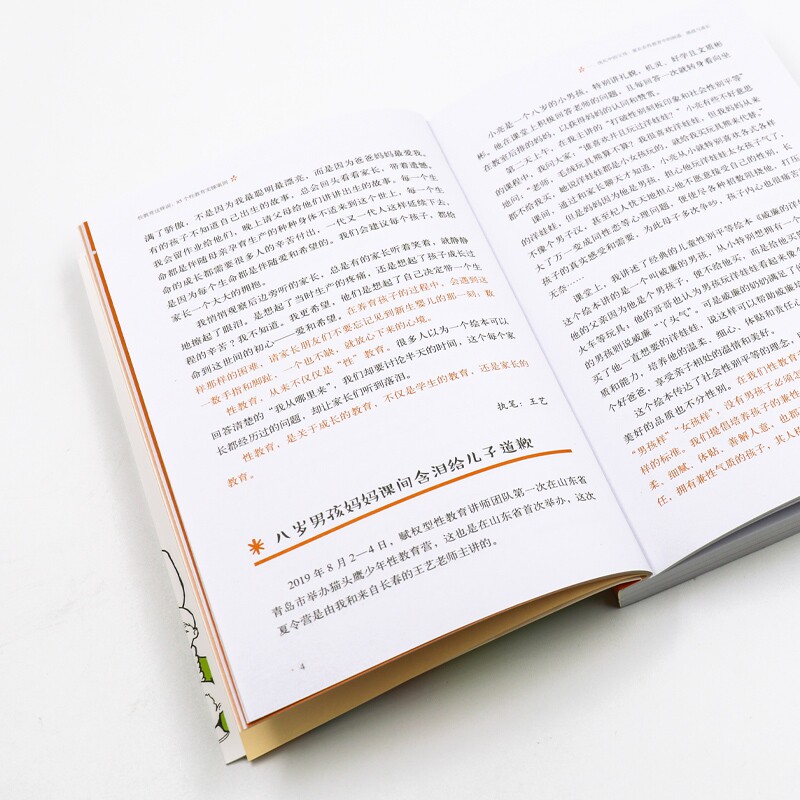 满了骄傲，不是因为我最聪明最漂亮，而是因为爸爸妈妈最爱我。
有的孩子不知道自己出生的故事，总会回头看看家长，带着遗憾。
我会留作业给他们，晚上请父母给他们讲讲出生的故事。每一个生
命都是伴随母亲孕育生产的种种身体不适来到这个世上，每一个生
命的成长都需要很多人的辛苦付出，一代又一代人这样延续下去，
是因为每个生命都是伴随爱和希望的。我们会建议每个孩子，都给
家长一个大大的拥抱。
我悄悄观察后边旁听的家长，总是有的家长听着笑着，就静静
地擦起了眼泪。是想起了当时生产的疼痛，还是想起了孩子成长过
程的辛苦？我不知道。我更希望，他们是想起了自己决定带一个生
命到这世间的初心——爱和希望。在养育孩子的过程中，会遇到这
样那样的困难，请家长朋友们不要忘记见到新生婴儿的那一刻，数
一数手指和脚趾，一个也不缺，就放心下来的心境。
性教育，从来不仅仅是“性”教育。很多人以为一个绘本可以
回答清楚的“我从哪里来”，我们却要讨论半天的时间，这个每个家
长都经历过的问题，却让家长们听到落泪。
性教育，是关于成长的教育，不仅是学生的教育，还是家长的
教育。
执笔：王艺
八岁男孩妈妈课间含泪给儿子道歉
2019 年 8 月 2—4 日，赋权型性教育讲师团队第一次在山东省
青岛市举办猫头鹰少年性教育营，这也是在山东省首次举办，这次
夏令营是由我和来自长春的王艺老师主讲的。
4
小亮是一个八岁的小男孩，特别讲礼貌，机灵、好学且文质彬
彬，他在课堂上积极回答老师的问题，且每回答一次就转身看向坐
在教室后排的妈妈，以获得妈妈的认同和赞赏。
第一天上午，在我主讲的“打破性别刻板印象和社会性别平等”
的课程中，我问大家，“谁喜欢并且玩过洋娃娃？”小亮有些不好意思
问，“老师，毛绒玩具熊算不算？我很喜欢洋娃娃，但我妈妈从来
都不给我买，她说洋娃娃都是小女孩玩的，就给我买玩具熊来代替。”
课间，通过和家长聊天才知道，小亮从小就特别喜欢各式各样
的洋娃娃，但是妈妈因为他是男孩，担心他玩洋娃娃太女孩子气了，
不像个男子汉，其亲朋
大了万一变成同性恋等心理问题，便使尽各种招数阻挠他，打压
孩子的真实感受和需要，为此母子多次争吵，孩子内心也很痛苦
无奈……
课堂上，我讲述了经典的儿童性别平等绘本《威廉的洋
这个绘本讲的是一个叫威廉的男孩，从小特别想拥有一个
他的父亲因为他是个男孩子，便不给他买，而是给他买
火车等玩具，他的哥哥也认为男孩玩洋娃娃看起来像
的男孩别说威廉“丫头气”。可是威廉的奶奶满足了
买了他一直想要的洋娃娃，说这样可以帮助威廉
质和能力，培养他的温柔、细心、体贴和责任
个好爸爸，享受亲子相处的温情和美好。
这个绘本传达了社会性别平等的理念，
美好的品质也不分性别。在我们性教育
“男孩样”“女孩样”，没有男孩子必须怎
样的标准。我们提倡培养孩子的兼性
柔、细腻、体贴、善解人意，也都
任，拥有兼性气质的孩子，其人